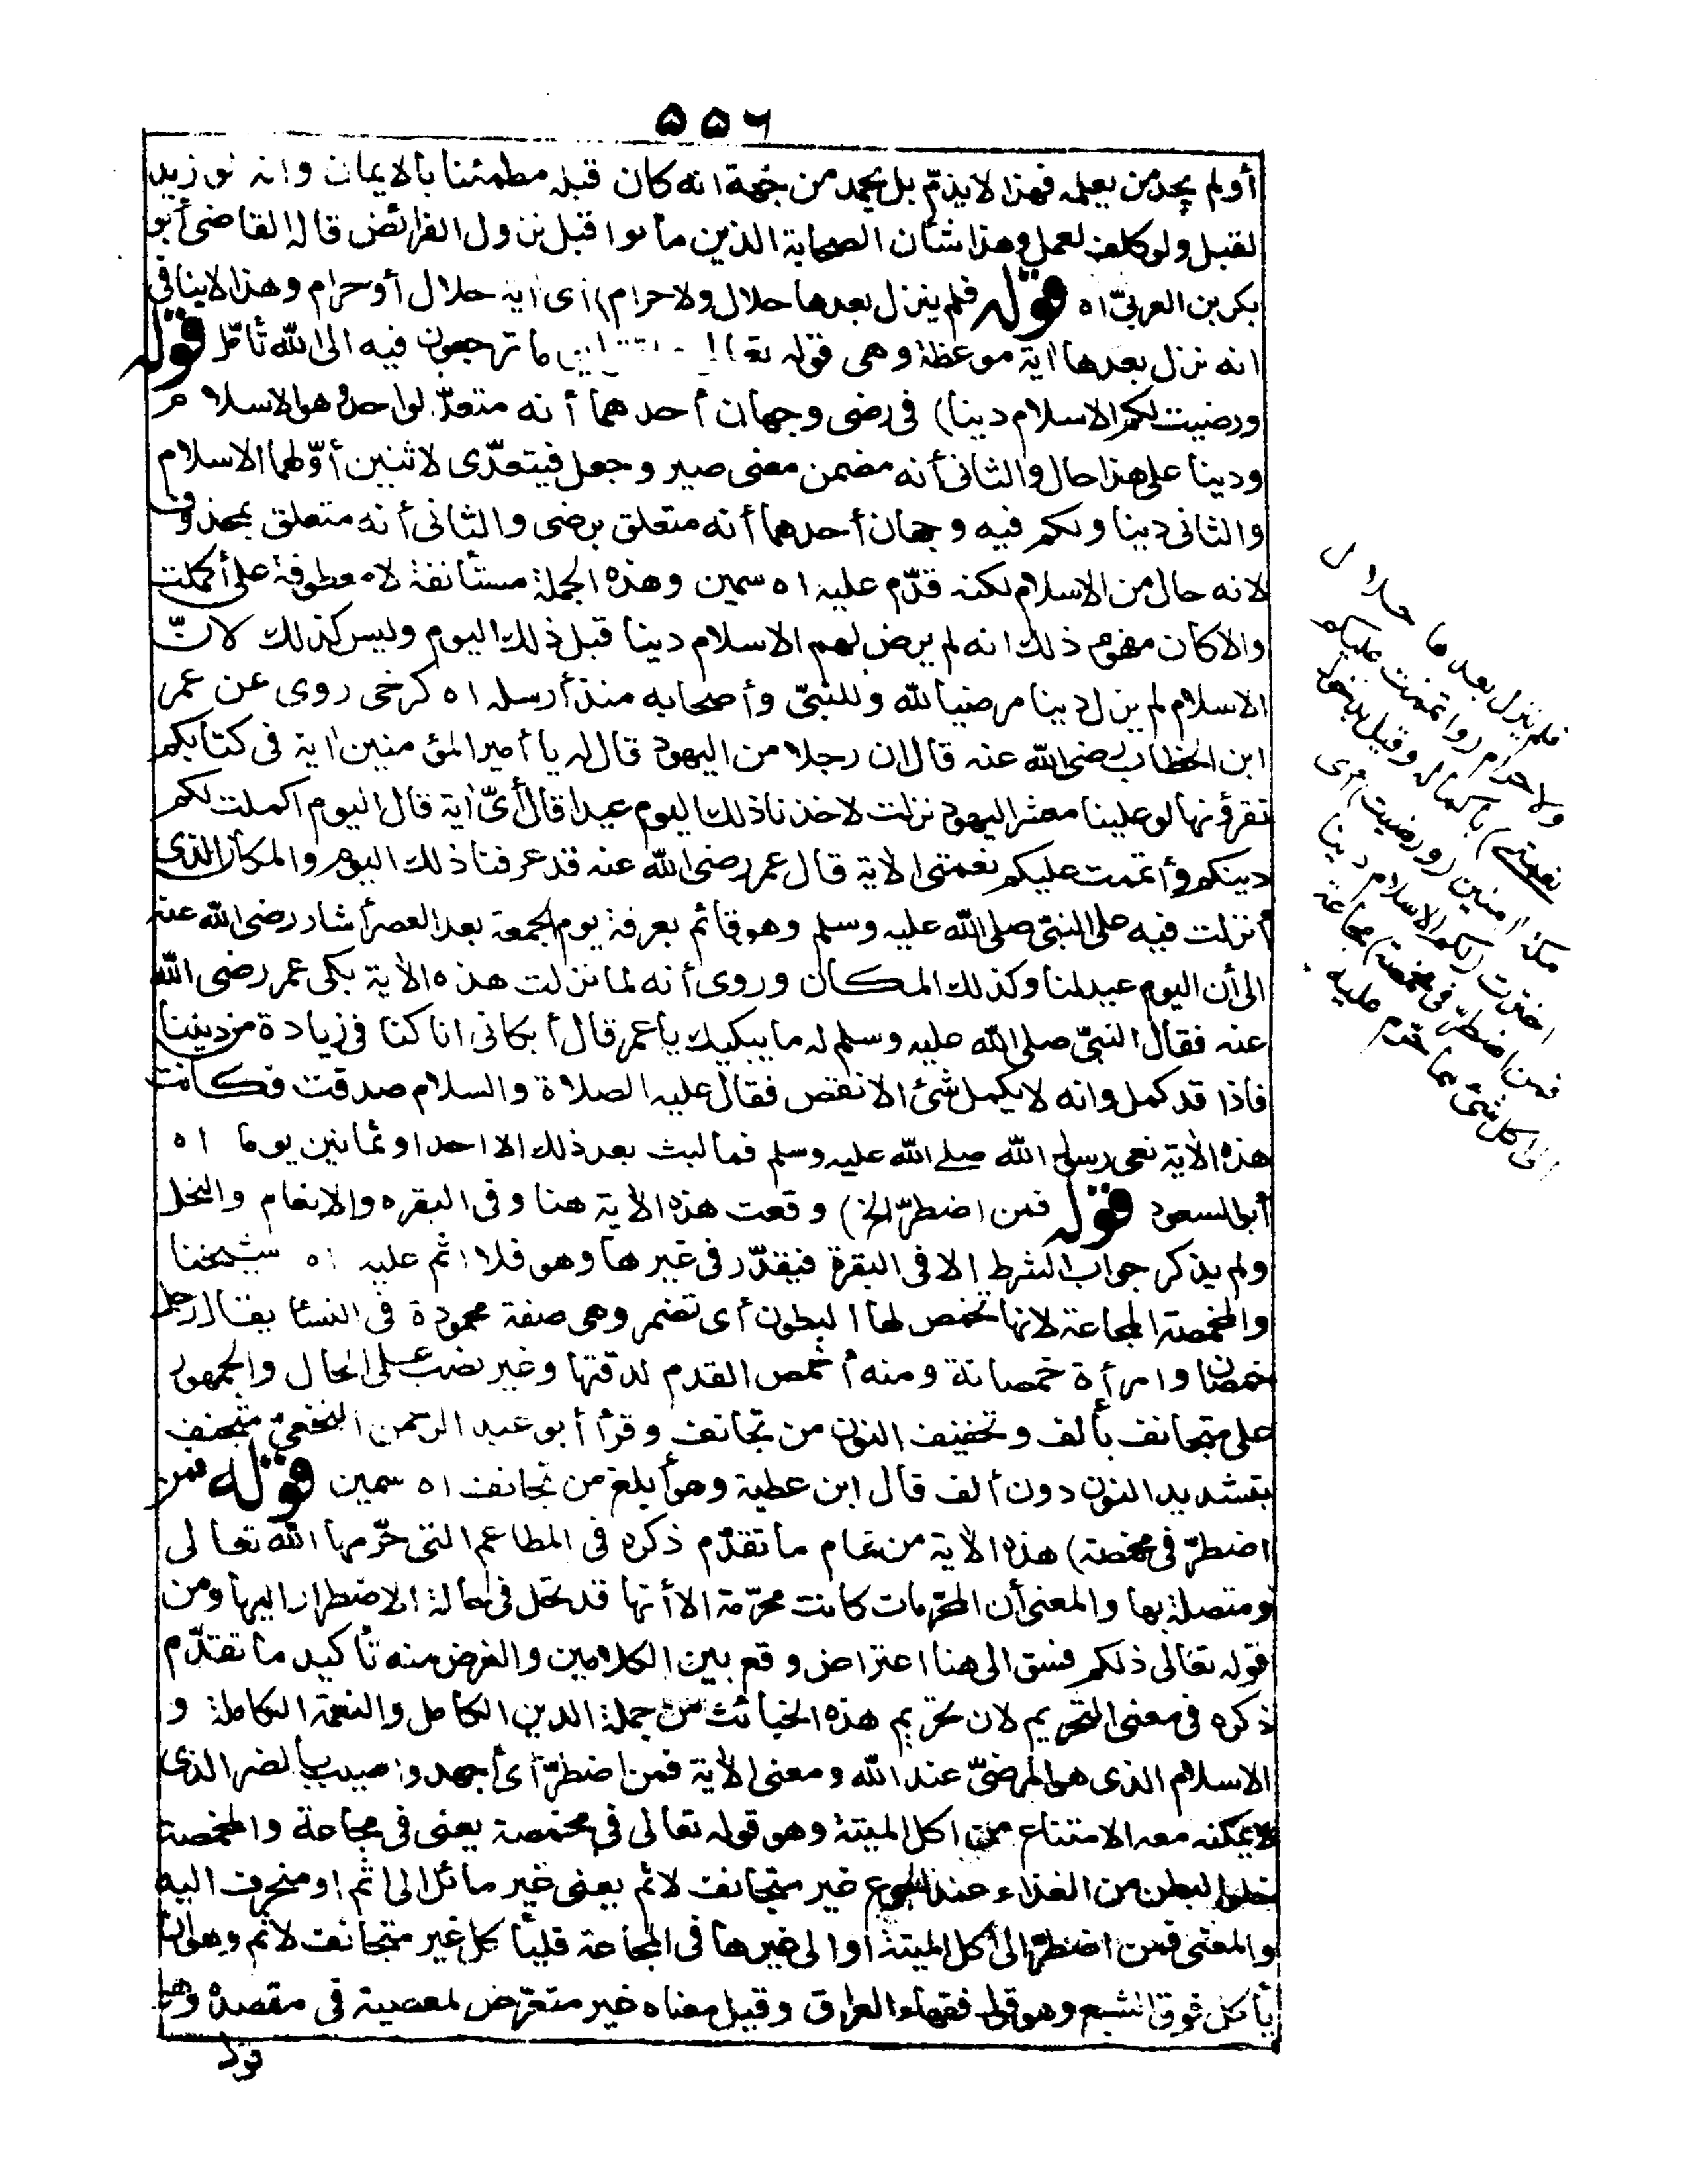 ٥٥٦
أولم يجد من يعلمه فهذا لايذمّ بل يحمد من جهة انه كان قبله مطمئنا بالايمان وانه لوزيد
لقبل ولوكلف لعمل وهذا شأن الصحابة الذين ماتوا قبل نزول الفرائض قاله القاضى أبو
بكر بن العربىّ اه قوله فلم ينزل بعدها حلال ولاحرام) أى اية حلال أوحرام وهذا لاينافى
انه نزل بعدها اية موعظة وهى قوله تعا ما ترجعون فيه الى الله تأمّل قوله
ورضيت لكم الاسلام دينا) فى رضى وجهان أحدهما أنه متعدّ لواحد وهو الاسلام
ودينا على هذا حال والثانى أنه مضمن معنى صير وجعل فيتعدّى لاثنين أوّلهما الاسلام
والثانى دينا ولكم فيه وجهان أحدهما أنه متعلق برضى والثانى أنه متعلق بمحذوف
لانه حال من الاسلام لكنه قدّم عليه اه سمين وهذه الجملة مستأنفة لامعطوفة على أكملت
والاكان مفهوم ذلك انه لم يرض لهم الاسلام دينا قبل ذلك اليوم وليس كذلك لانّ
الاسلام لم يزل دينا مرضيا لله وللنبىّ وأصحابه منذ أرسله اه كرخى روى عن عمر
ابن الخطاب رضى الله عنه قال ان رجلا من اليهود قال له يا أمير المؤمنين اية فى كتابكم
تقرؤنها لوعلينا معشر اليهود نزلت لاخذنا ذلك اليوم عيدا قال أىّ اية قال اليوم اكملت لكم
دينكم وأتممت عليكم نعمتى الاية قال عمر رضى الله عنه قد عرفنا ذلك اليوم والمكان الذى
أنزلت فيه على النبىّ صلى الله عليه وسلم وهو قائم بعرفة يوم الجمعة بعد العصر أشار رضى الله عنه
الى أن اليوم عيد لنا وكذلك المكان وروى أنه لما نزلت هذه الاية بكى عمر رضى الله
عنه فقال النبىّ صلى الله عليه وسلم له ما يبكيك ياعمر قال أبكانى انا كنا فى زيادة من ديننا
فاذا قد كمل وانه لايكمل شئ الا نقص فقال عليه الصلاة والسلام صدقت فكانت
هذه الاية نعى رسول الله صلى الله عليه وسلم فما لبث بعد ذلك الا احدا وثمانين يوما اه
أبوالسعود قوله فمن اضطرّ الخ) وقعت هذه الاية هنا وفى البقره والانعام والنحل
ولم يذكر جواب الشرط الا فى البقرة فيقدّر فى غيرها وهو فلا اثم عليه اه شيخنا
والمخمصة المجاعة لانها تخمص لها البطون أى تضمر وهى صفة محمودة فى النسا يقال رجل
خمصان وامرأة خمصانة ومنه أخمص القدم لدقتها وغير نصب على الحال والجمهور
على متجانف بألف وتخفيف النون من تجانف وقرأ أبو عبد الرحمن النخعىّ متجنف
بتشديد النون دون ألف قال ابن عطية وهو أبلغ من تجانف اه سمين قوله فمن
اضطرّ فى مخمصة) هذه الاية من تمام ما تقدّم ذكره فى المطاعم التى حرّمها الله تعالى
ومتصلة بها والمعنى أن المحرّمات كانت محرّمة الا أنها قد تحل فى حالة الاضطرار اليها ومن
قوله تعالى ذلكم فسق الى هنا اعتراض وقع بين الكلامين والغرض منه تأكيد ما تقدّم
ذكره فى معنى التحريم لان تحريم هذه الخبائث من جملة الدين الكامل والنعمة الكاملة و
الاسلام الذى هو المرضىّ عند الله ومعنى الاية فمن اضطرّ أى أجهد واصيب بالضر الذى
لايمكنه معه الامتناع من اكل الميتة وهو قوله تعالى فى مخمصة يعنى فى مجاعة والمخمصة
خلو البطن من الغذاء عند الجوع غير متجانف لاثم يعنى غير مائل الى اثم او منحرف اليه
والمعنى فمن اضطرّ الى أكل الميتة أوالى غيرها فى المجاعة فليأكل غير متجانف لاثم وهو أن
يأكل فوق الشبع وهو قول فقهاء العراق وقيل معناه غير متعرّض لمعصية فى مقصده وهو
قول
فلم ينزل بعدها حلال
ولا حرام (واتممت عليكم
نعمتى) باكماله وقيل بدخول
مكة امنين (ورضيت) أى
اخترت (لكم الاسلام دينا
فمن اضطرّ فى مخمصة) مجاعة
الى اكل شئ مما حرم عليه